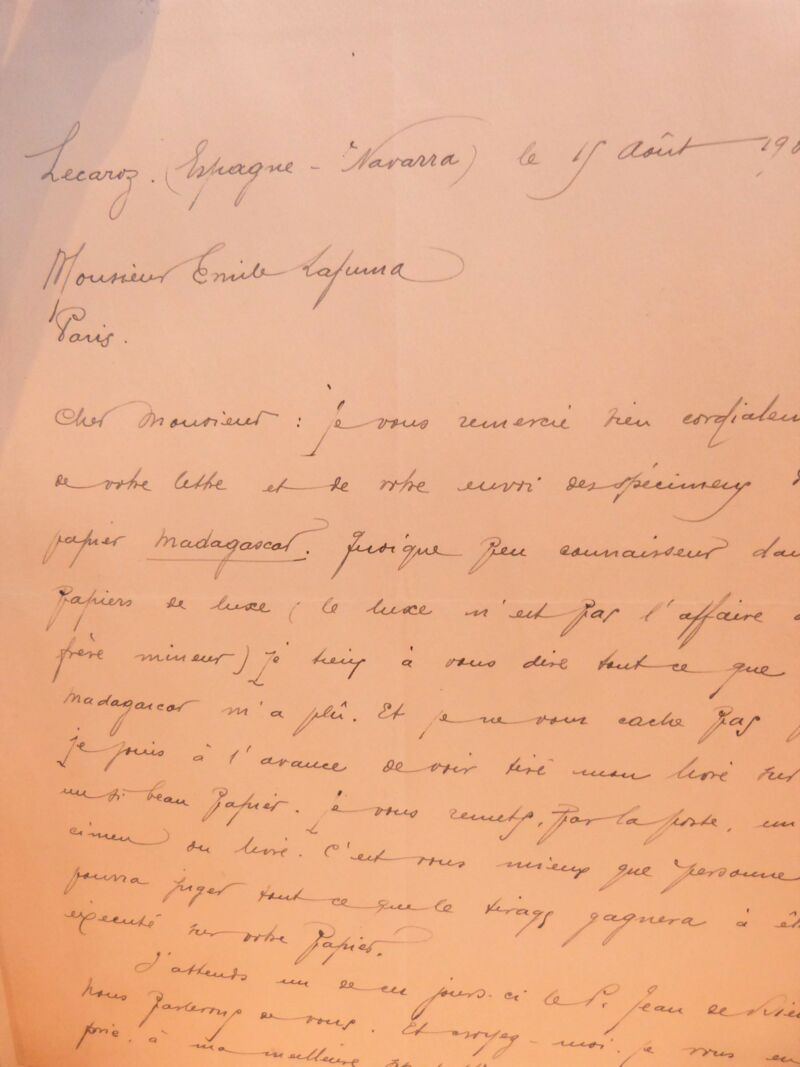 Lecaroz. (Espagne - Navarra) le 15 Août 190
Monsieur Emile Lafuma
Paris.
Cher Monsieur : je vous remercie bien cordialem
de votre lettre et de votre envoi des spécimens d
papier Madagascar. Quoique peu connaisseur dan
papiers de luxe (le luxe n'est pas l'affaire d
frère mineur) je tiens à vous dire tout ce que
Madagascar m'a plû. Et je ne vous cache pas
je jouis à l'avance de voir tiré mon livre sur
un si beau papier. je vous remets, par la poste, un
cimen du livre. C'est vous mieux que personne
pourra juger tout ce que le tirage gagnera à êt
exécuté sur votre papier.
J'attends un de ces jours-ci le P. Jean de
nous parlerons de vous. Et croyez-moi, je vous en
prie, à ma meilleure